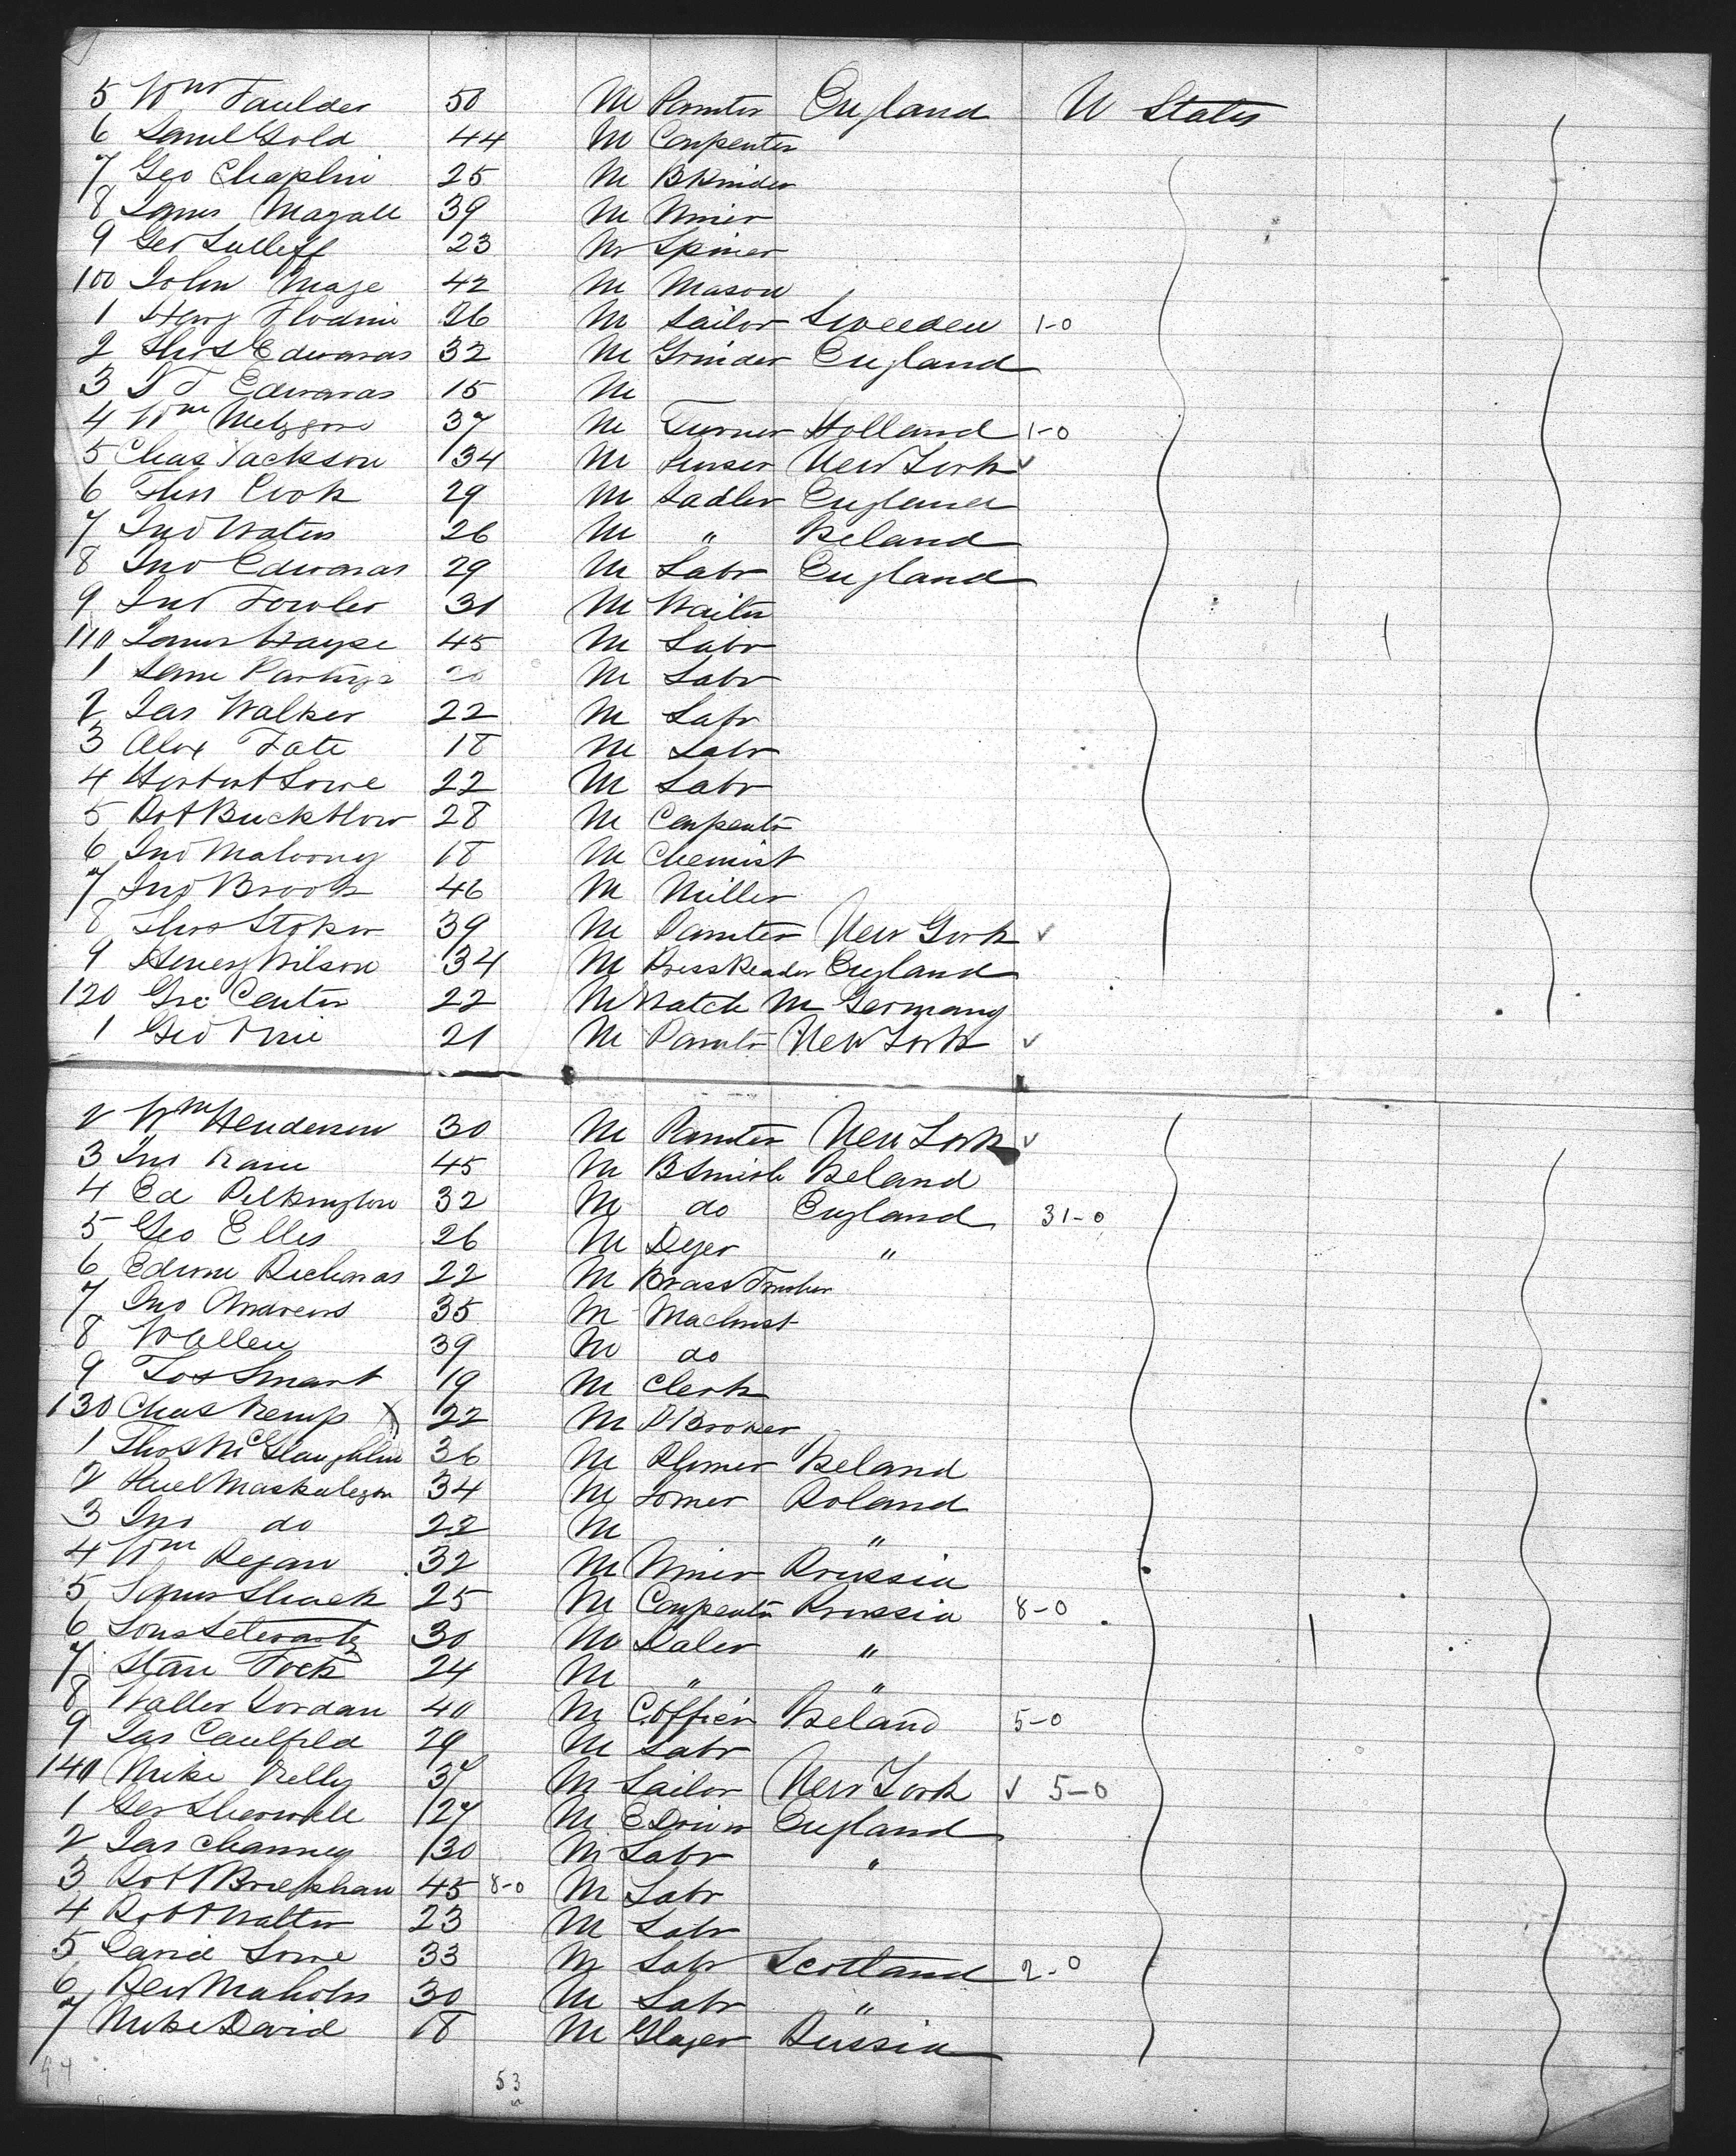 5 Wm Faulder 50 M Painter England U States
6 Saml Gold 44 M Carpenter
7 Geo Chaplin 25 M
8 James 39 M Miner
9 Geo 23 M Spiner
100 John Maze 42 M Mason
1 26 M Sailor Sweeden 1-0
2 Thos Edwards 32 M Grinder England
3 Edwards 15 M
4 Wm 37 M Turner Holland 1-0
5 Chas Jackson 34 M New York ✓
6 Thos Cook 29 M Sadler England
7 Jno Waters 26 M " Ireland
8 Jno Edwards 29 M Labr England
9 Jno Fowler 31 M Waiter
110 James 45 M Labr
1 Sam M Labr
2 Jas Walker 22 M Labr
3 Alex Tate 18 M Labr
4 Herbert Lowe 22 M Labr
5 Rot 28 M Carpentr
6 Jno Maloony 18 M Chemist
7 Jno Brook 46 M Miller
8 Thos Stoker 39 M Painter New York ✓
9 Henery Wilson 34 M Press Reader England
120 Geo Center 22 M Watch M Germany
1 Geo 21 M Paintr New York ✓
2 Wm Henderson 30 M Painter New York ✓
3 Jno Kane 45 M BSmith Ireland
4 Ed Pilkington 32 M do England 31-0
5 Geo Elles 26 M Dyer "
6 Edwin Richards 22 M Brass Finisher
7 Jno Andrews 35 M Machinst
8 W Allen 39 M do
9 Jos Smart 19 M Clerk
130 Chas Kemp X 22 M PBroker
1 Thos McGlaughlin 36 M Ireland
2 34 M Poland
3 Jno do 22 M "
4 Wm Regan 32 M Miner Prussia
5 James 25 M Carpentr Prussia 8-0
6 30 M "
7 24 M " "
8 Walter Jordan 40 M Ireland 5-0
9 Jas Caulfild 29 M Labr
140 Mike Kelly 37 M Sailor New York ✓ 5-0
1 Geo 27 M E Driver England
2 Jas Channey 30 M Labr "
3 Rot 45 8-0 M Labr
4 Robt Walter 23 M Labr
5 David Lowe 33 M Labr Scotland 2-0
6 30 M Labr "
7 Mike David 18 M Glazer Russia
94
53